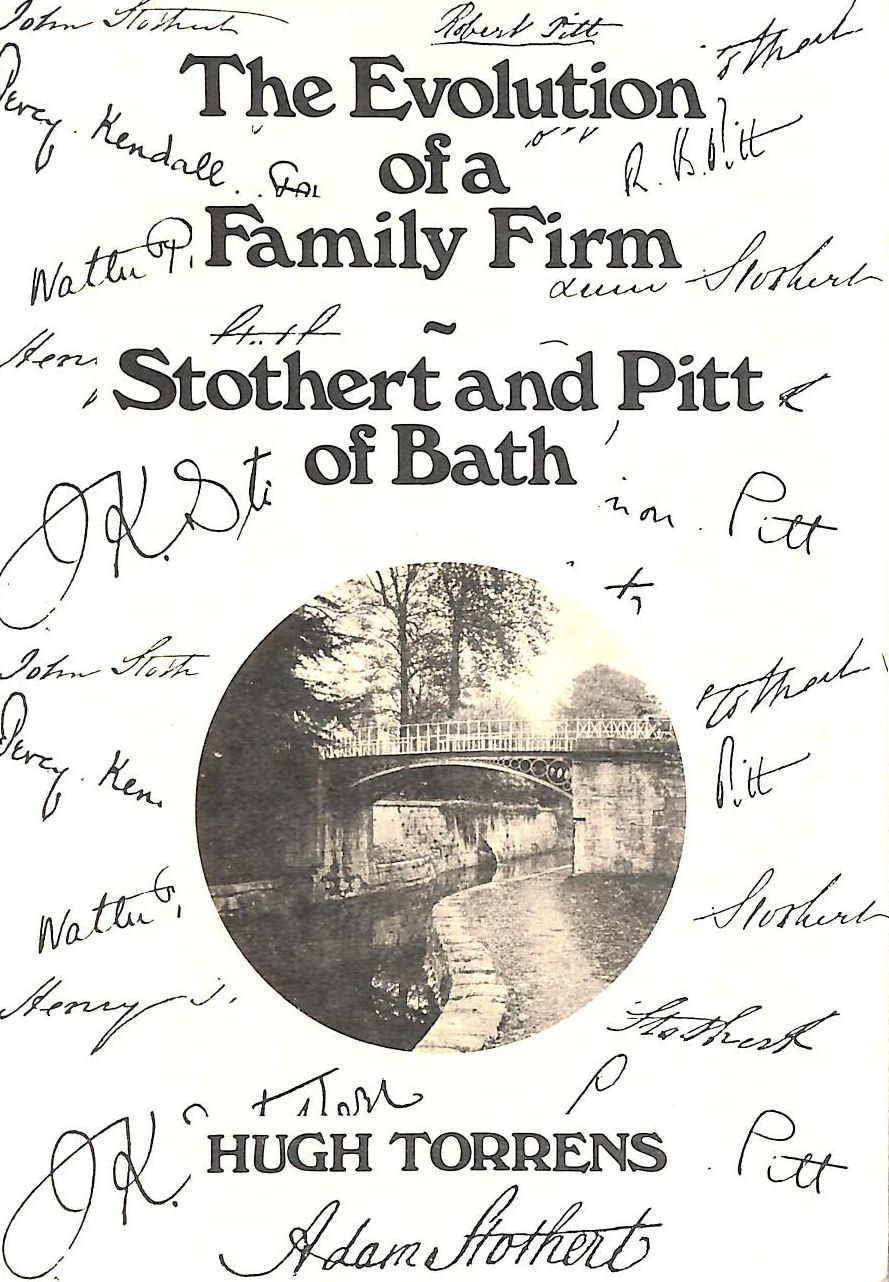 John Stothert
Robert Pitt
The Evolution
Percy Kendall
of a
R. B. Pitt
Family Firm
Stothert
~
Stothert and Pitt
of Bath
JK.
Pitt
John Stoth
Percy Ken
Pitt
Stothert
Henry
Stothert
JK.
HUGH TORRENS
Pitt
Adam Stothert